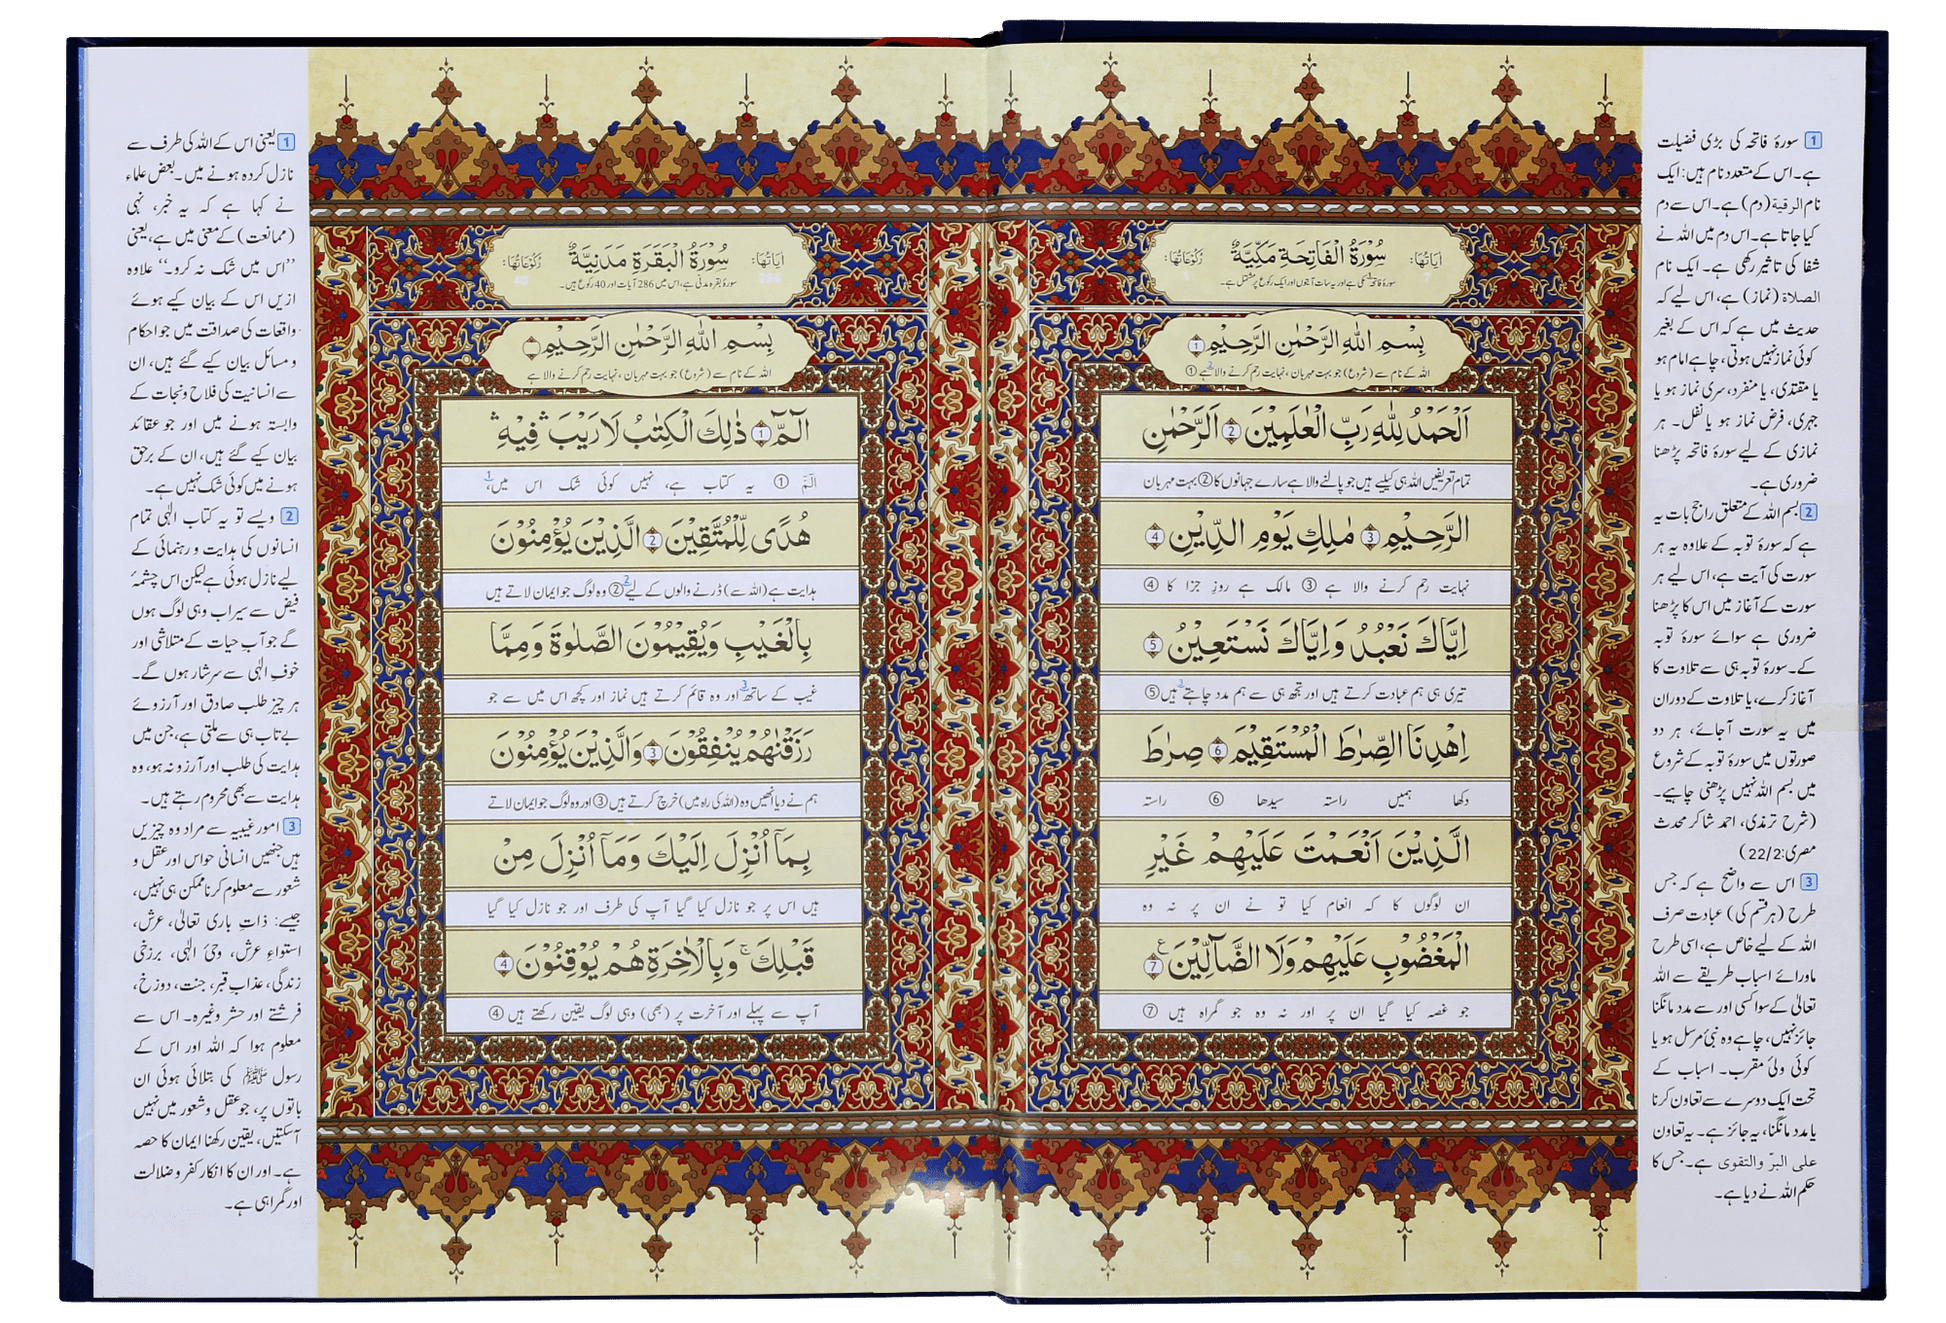 سُوْرَةُ الْفَاتِحَةِ مَكِّيَّةٌ
اٰيَاتُهَا:
رُكُوْعَاتُهَا:
سورۂ فاتحہ مکی ہے اور یہ سات آیتوں اور ایک رکوع پر مشتمل ہے۔
بِسْمِ اللّٰهِ الرَّحْمٰنِ الرَّحِيْمِ 1
اللہ کے نام سے (شروع) جو بہت مہربان، نہایت رحم کرنے والا ہے ①
اَلْحَمْدُ لِلّٰهِ رَبِّ الْعٰلَمِيْنَ 2 الرَّحْمٰنِ
تمام تعریفیں اللہ ہی کیلیے ہیں جو پالنے والا ہے سارے جہانوں کا ② بہت مہربان
الرَّحِيْمِ 3 مٰلِكِ يَوْمِ الدِّيْنِ 4
نہایت رحم کرنے والا ہے ③ مالک ہے روزِ جزا کا ④
اِيَّاكَ نَعْبُدُ وَاِيَّاكَ نَسْتَعِيْنُ 5
تیری ہی ہم عبادت کرتے ہیں اور تجھ ہی سے ہم مدد چاہتے 3 ہیں ⑤
اِهْدِنَا الصِّرَاطَ الْمُسْتَقِيْمَ 6 صِرَاطَ
دکھا ہمیں راستہ سیدھا ⑥ راستہ
الَّذِيْنَ اَنْعَمْتَ عَلَيْهِمْ غَيْرِ
ان لوگوں کا کہ انعام کیا تو نے ان پر نہ وہ
الْمَغْضُوْبِ عَلَيْهِمْ وَلَا الضَّآلِّيْنَ 7 ع
جو غصہ کیا گیا ان پر اور نہ وہ جو گمراہ ہیں ⑦
1 سورۂ فاتحہ کی بڑی فضیلت
ہے۔ اس کے متعدد نام ہیں: ایک
نام الرقیۃ (دم) ہے۔ اس سے دم
کیا جاتا ہے۔ اس دم میں اللہ نے
شفا کی تاثیر رکھی ہے۔ ایک نام
الصلاۃ (نماز) ہے، اس لیے کہ
حدیث میں ہے کہ اس کے بغیر
کوئی نماز نہیں ہوتی، چاہے امام ہو
یا مقتدی، یا منفرد، سری نماز ہو یا
جہری، فرض نماز ہو یا نفل۔ ہر
نمازی کے لیے سورۂ فاتحہ پڑھنا
ضروری ہے۔
2 بسم اللہ کے متعلق راجح بات یہ
ہے کہ سورۂ توبہ کے علاوہ یہ ہر
سورت کی آیت ہے، اس لیے ہر
سورت کے آغاز میں اس کا پڑھنا
ضروری ہے سوائے سورۂ توبہ
کے۔ سورۂ توبہ ہی سے تلاوت کا
آغاز کرے، یا تلاوت کے دوران
میں یہ سورت آجائے، ہر دو
صورتوں میں سورۂ توبہ کے شروع
میں بسم اللہ نہیں پڑھنی چاہیے۔
(شرح ترمذی، احمد شاکر محدث
مصری: 22/2)
3 اس سے واضح ہے کہ جس
طرح (ہر قسم کی) عبادت صرف
اللہ کے لیے خاص ہے، اسی طرح
ماورائے اسباب طریقے سے اللہ
تعالیٰ کے سوا کسی اور سے مدد مانگنا
جائز نہیں، چاہے وہ نبیٔ مرسل ہو یا
کوئی ولیٔ مقرب۔ اسباب کے
تحت ایک دوسرے سے تعاون کرنا
یا مدد مانگنا، یہ جائز ہے۔ یہ تعاون
علی البرّ والتقوی ہے۔ جس کا
حکم اللہ نے دیا ہے۔
سُوْرَةُ الْبَقَرَةِ مَدَنِيَّةٌ
اٰيَاتُهَا: 286
رُكُوْعَاتُهَا: 40
سورۂ بقرہ مدنی ہے، اس میں 286 آیات اور 40 رکوع ہیں۔
بِسْمِ اللّٰهِ الرَّحْمٰنِ الرَّحِيْمِ
اللہ کے نام سے (شروع) جو بہت مہربان، نہایت رحم کرنے والا ہے
الٓمّٓ 1 ذٰلِكَ الْكِتٰبُ لَا رَيْبَ ۛ فِيْهِ ۛ
الٓمّٓ ① یہ کتاب ہے، نہیں کوئی شک اس میں، 1
هُدًى لِّلْمُتَّقِيْنَ 2 الَّذِيْنَ يُؤْمِنُوْنَ
ہدایت ہے (اللہ سے) ڈرنے والوں کے لیے 2 ② وہ لوگ جو ایمان لاتے ہیں
بِالْغَيْبِ وَيُقِيْمُوْنَ الصَّلٰوةَ وَمِمَّا
غیب کے ساتھ 3 اور وہ قائم کرتے ہیں نماز اور کچھ اس میں سے جو
رَزَقْنٰهُمْ يُنْفِقُوْنَ 3 وَالَّذِيْنَ يُؤْمِنُوْنَ
ہم نے دیا انھیں وہ (اللہ کی راہ میں) خرچ کرتے ہیں ③ اور وہ لوگ جو ایمان لاتے
بِمَآ اُنْزِلَ اِلَيْكَ وَمَآ اُنْزِلَ مِنْ
ہیں اس پر جو نازل کیا گیا آپ کی طرف اور جو نازل کیا گیا
قَبْلِكَ ۚ وَبِالْاٰخِرَةِ هُمْ يُوْقِنُوْنَ 4
آپ سے پہلے اور آخرت پر (بھی) وہی لوگ یقین رکھتے ہیں ④
1 یعنی اس کے اللہ کی طرف سے
نازل کردہ ہونے میں۔ بعض علماء
نے کہا ہے کہ یہ خبر، نہی
(ممانعت) کے معنی میں ہے، یعنی
”اس میں شک نہ کرو۔“ علاوہ
ازیں اس کے بیان کیے ہوئے
واقعات کی صداقت میں جو احکام
و مسائل بیان کیے گئے ہیں، ان
سے انسانیت کی فلاح و نجات کے
وابستہ ہونے میں اور جو عقائد
بیان کیے گئے ہیں، ان کے برحق
ہونے میں کوئی شک نہیں ہے۔
2 ویسے تو یہ کتاب الٰہی تمام
انسانوں کی ہدایت و رہنمائی کے
لیے نازل ہوئی ہے لیکن اس چشمۂ
فیض سے سیراب وہی لوگ ہوں
گے جو آب حیات کے متلاشی اور
خوفِ الٰہی سے سرشار ہوں گے۔
ہر چیز طلب صادق اور آرزوئے
بے تاب ہی سے ملتی ہے، جن میں
ہدایت کی طلب اور آرزو نہ ہو، وہ
ہدایت سے بھی محروم رہتے ہیں۔
3 امور غیبیہ سے مراد وہ چیزیں
ہیں جنھیں انسانی حواس اور عقل و
شعور سے معلوم کرنا ممکن ہی نہیں،
جیسے: ذاتِ باری تعالیٰ، عرش،
استواءِ عرش، وحیٔ الٰہی، برزخی
زندگی، عذابِ قبر، جنت، دوزخ،
فرشتے اور حشر وغیرہ۔ اس سے
معلوم ہوا کہ اللہ اور اس کے
رسول ﷺ کی بتلائی ہوئی ان
باتوں پر، جو عقل و شعور میں نہیں
آسکتیں، یقین رکھنا ایمان کا حصہ
ہے۔ اور ان کا انکار کفر و ضلالت
اور گمراہی ہے۔